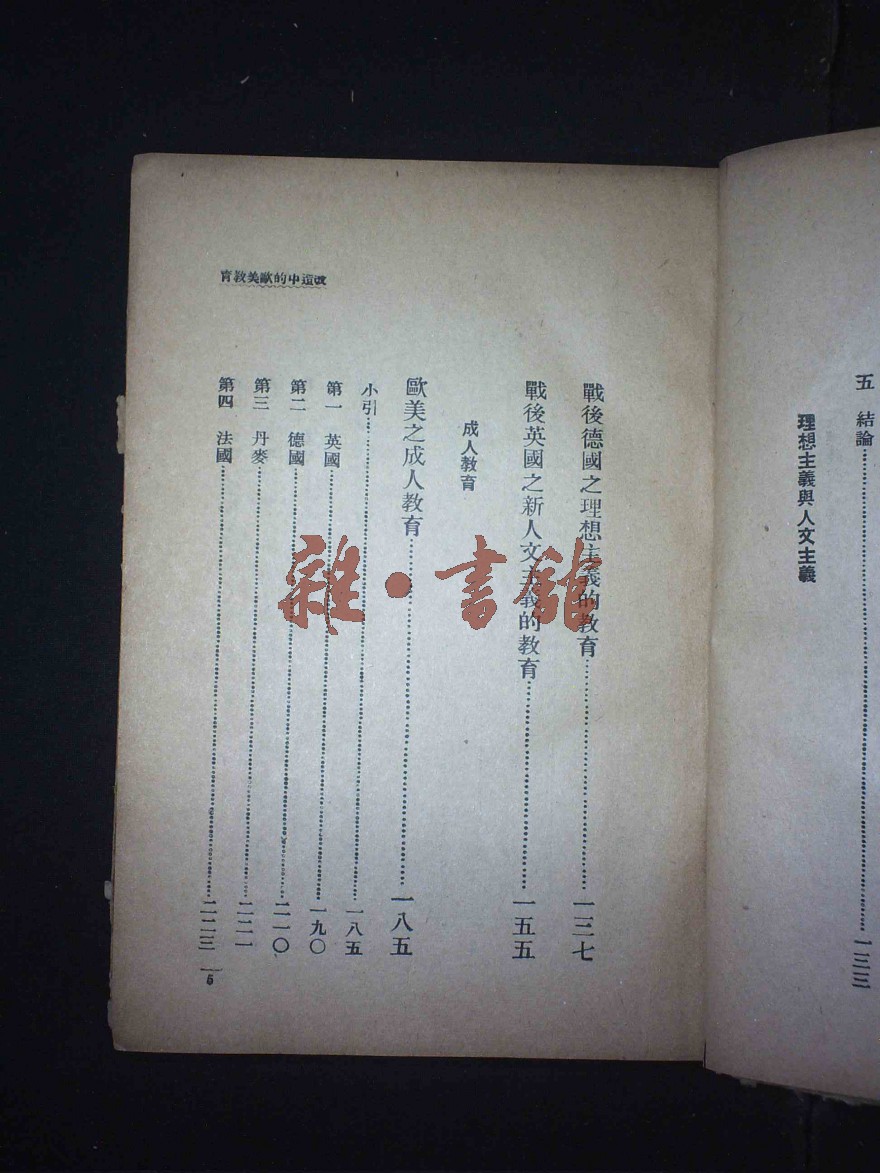 五　結論……一三三
理想主義與人文主義
改造中的歐美教育
戰後德國之理想主義的教育……一三七
戰後英國之新人文主義的教育……一五五
成人教育
歐美之成人教育……一八五
小引……一八五
第一　英國……一九〇
第二　德國……二一〇
第三　丹麥……二二一
第四　法國……二二三
5
雜·書館